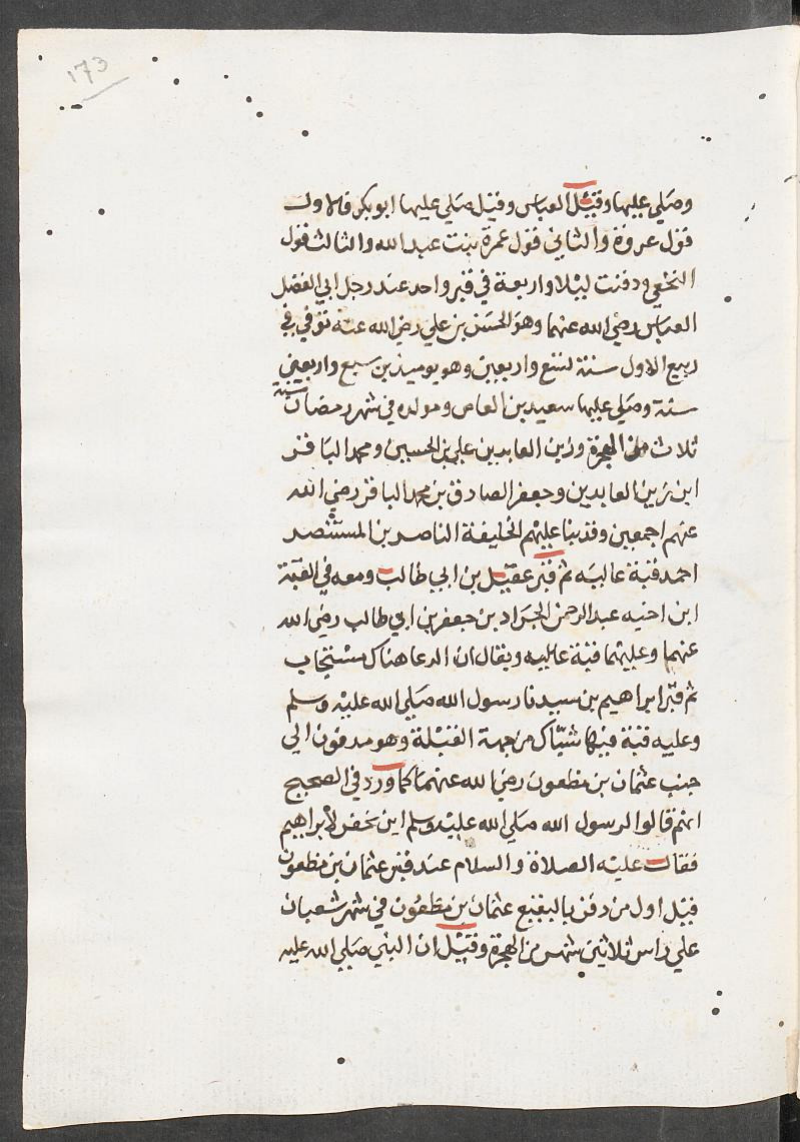 173
وصلي عليها وقيل العباس وقيل صلي عليها ابوبكر فالاول
قول عروة والثاني قول عمرة بنت عبد الله والثالث قول
النخعي ودفنت ليلا واربعة في قبر واحد عند رجل ابي الفضل
العباس رضي الله عنهما وهو الحسن بن علي رضي الله عنه توفي في
ربيع الاول سنة تسع واربعين وهو يوميذ بن سبع واربعين
سنة وصلي عليها سعيد بن العاص ومولده في شهر رمضان سنة
ثلاث من الهجرة وزين العابدين علي بن الحسين ومحمد الباقر
ابن زين العابدين وجعفر الصادق بن محمد الباقر رضي الله
عنهم اجمعين وقد بنا عليهم الخليفة الناصر بن المستنصر
احمد قبة عالية ثم قبر عقيل بن ابي طالب ومعه في القبة
ابن اخيه عبد الرحمن الجواد بن جعفر بن ابي طالب رضي الله
عنهما وعليهما قبة عاليه ويقال ان الدعا هناك مستجاب
ثم قبر ابراهيم بن سيدنا رسول الله صلي الله عليه وسلم
وعليه قبة فيها شباك من جهة القبلة وهو مدفون الي
جنب عثمان بن مظعون رضي الله عنهما كما ورد في الصحيح
انهم قالوا لرسول الله صلي الله عليه وسلم اين نحفر لابراهيم
فقال عليه الصلاة والسلام عند قبر عثمان بن مظعون
قيل اول من دفن بالبقيع عثمان بن مظعون في شهر شعبان
علي راس ثلاثين شهر من الهجرة وقيل ان النبي صلي الله عليه